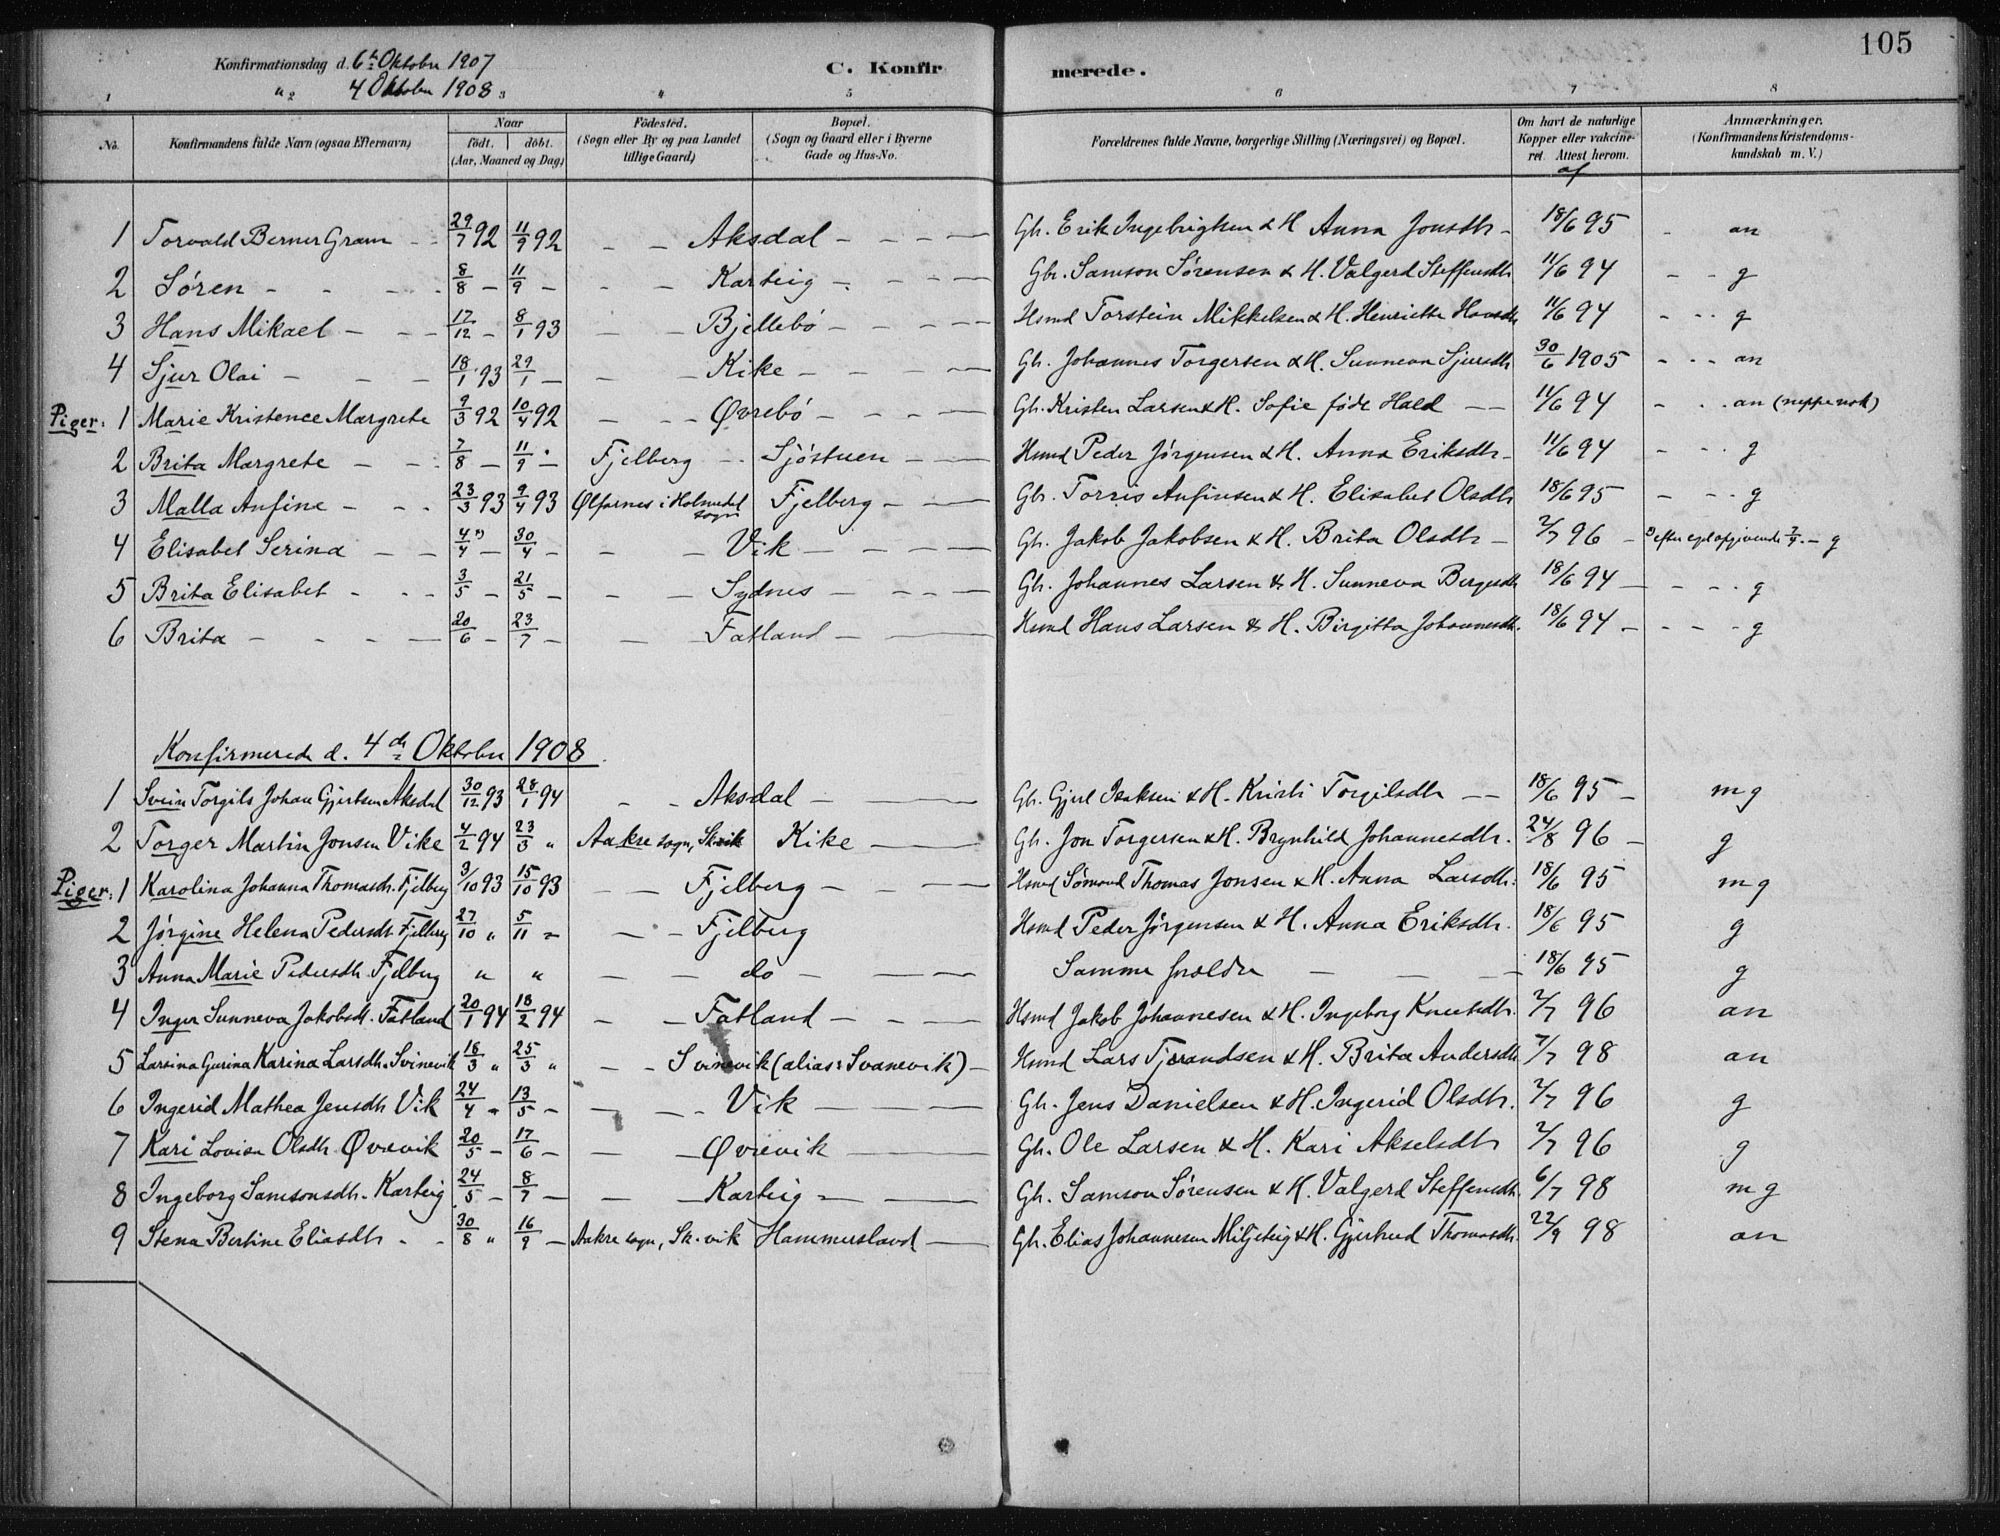 105
Konfirmationsdag d. 6te Oktober 1907
" 4 Oktober 1908
C. Konfirmerede.
1 2 3 4 5 6 7 8
No. Konfirmandens fulde Navn (ogsaa Efternavn) Naar födt. döbt. (Aar, Maaned og Dag) Födested. (Sogn eller By og paa Landet tillige Gaard) Bopæl. (Sogn og Gaard eller i Byerne Gade og Hus-No. Forældrenes fulde Navne, borgerlige Stilling (Næringsvei) og Bopæl. Om havt de naturlige Kopper eller vakcineret. Attest herom. af Anmærkninger. (Konfirmandens Kristendomskundskab m. V.)
1 Torvald Berner Gram - - 29/7 92 11/9 92 - - Aksdal - - - Gb. Erik Ingebrigtsen & H. Anna Jonsdtr - 18/6 95 - an
2 Søren - - - 8/8 - 11/9 - - - Karteig - - - Gbr. Samson Sørensen & H. Valgerd Steffensdtr 11/6 94 - - g
3 Hans Mikael - - - 17/12 - 8/1 93 - - Bjellebö - - - Hsmd Torstein Mikkelsen & H. Henriette Hansdtr 11/6 94 - - - g
4 Sjur Olai - - - 18/1 93 29/1 - - - Kike - - - Gb. Johannes Torgersen & H. Sunneva Sjursdtr 30/6 1905 - - - an
Piger: 1 Marie Kristence Margrete 9/3 92 10/4 92 - - - Øvrebö - - - Gb. Kristen Larsen & H. Sofie föde Hald - - 11/6 94 - - - an (neppe nok)
2 Brita Margrete - - - 7/8 - 11/9 - Fjelberg - - Sjöstuen - - Hsmd Peder Jørgensen & H. Anna Eriksdtr - 11/6 94 - - - g
3 Malla Anfine - - - 23/3 93 9/4 93 Ølfarnes i Holmedal sogn Fjelberg - - Gbr. Torris Anfinsen & H. Elisabet Olsdtr 18/6 95 - - - g
4 Elisabet Serina - - 4/4 *) - 30/4 - - - Vik - - - Gb. Jakob Jakobsen & H. Brita Olsdtr - 2/7 96 - *) efter eget opgivende 7/4 - g
5 Brita Elisabet - - - 3/5 - 21/5 - - - Sydnes - - - Gb. Johannes Larsen & H. Sunneva 18/6 94 - - - - g
6 Brita - - - - 20/6 - 23/7 - - - Fatland - - Hsmd Hans Larsen & H. Birgitta Johannesdtr. 18/6 94 - - - - g
Konfirmerede d. 4de Oktober 1908
1 Svein Torgils Johan Gjertsen Aksdal 30/12 93 28/1 94 - - Aksdal - - Gb. Gjert Isaksen & H. Kristi Torgilsdtr - - 18/6 95 - mg
2 Torger Martin Jonsen Vike 4/2 94 23/3 " Aakre sogn, Sk.vik Kike - Gb. Jon Torgersen & H. Brynhild Johannesdtr. 24/8 96 - g
Piger: 1 Karolina Johanna Thomasdtr. Fjelberg 3/10 93 15/10 93 - - Fjelberg - - - Hsmd Sömand Thomas Jonsen & H. Anna Larsdtr. 18/6 95 mg
2 Jørgine Helena Pedersdtr. Fjelberg 27/10 " 5/11 - - - Fjelberg Hsmd Peder Jørgensen & H. Anna Eriksdtr. 18/6 95 g
3 Anna Marie Pedersdtr. Fjelberg " " - - do - - - Samme forældre - - - 18/6 95 g
4 Inger Sunneva Jakobsdtr. Fatland 20/1 94 18/2 94 - - Fatland - - - Hsmd Jakob Johannesen & H. Ingeborg Knutsdtr. 2/7 96 an
5 Larsina Gurina Karina Larsdtr. Svinevik 18/3 " 25/3 " - - Svinevik (alias: Svanevik) - Hsmd Lars Tjerandsen & H. Brita Andersdtr 7/7 98 an
6 Ingerid Mathea Jensdtr. Vik 24/4 - 13/5 - - - - Vik - - Gb. Jens Danielsen & H. Ingerid Olsdtr. 2/7 96 g
7 Kari Lovise Olsdtr. Øvrevik 20/5 - 17/6 - - - Øvrevik - - Gb. Ole Larsen & H. Kari Akselsdtr 2/7 96 g
8 Ingeborg Samsonsdtr. Karteig 24/5 - 8/7 - - - Karteig - - Gb. Samson Sørensen & H. Valgerd Steffensdtr. 6/7 98 mg
9 Stena Bertine Eliasdtr - - 30/8 " 16/9 - Aakre sogn, Sk.vik Hammersland - Gb. Elias Johannesen Miljeteig & H. Gjertrud Thomasdtr. 22/9 98 an